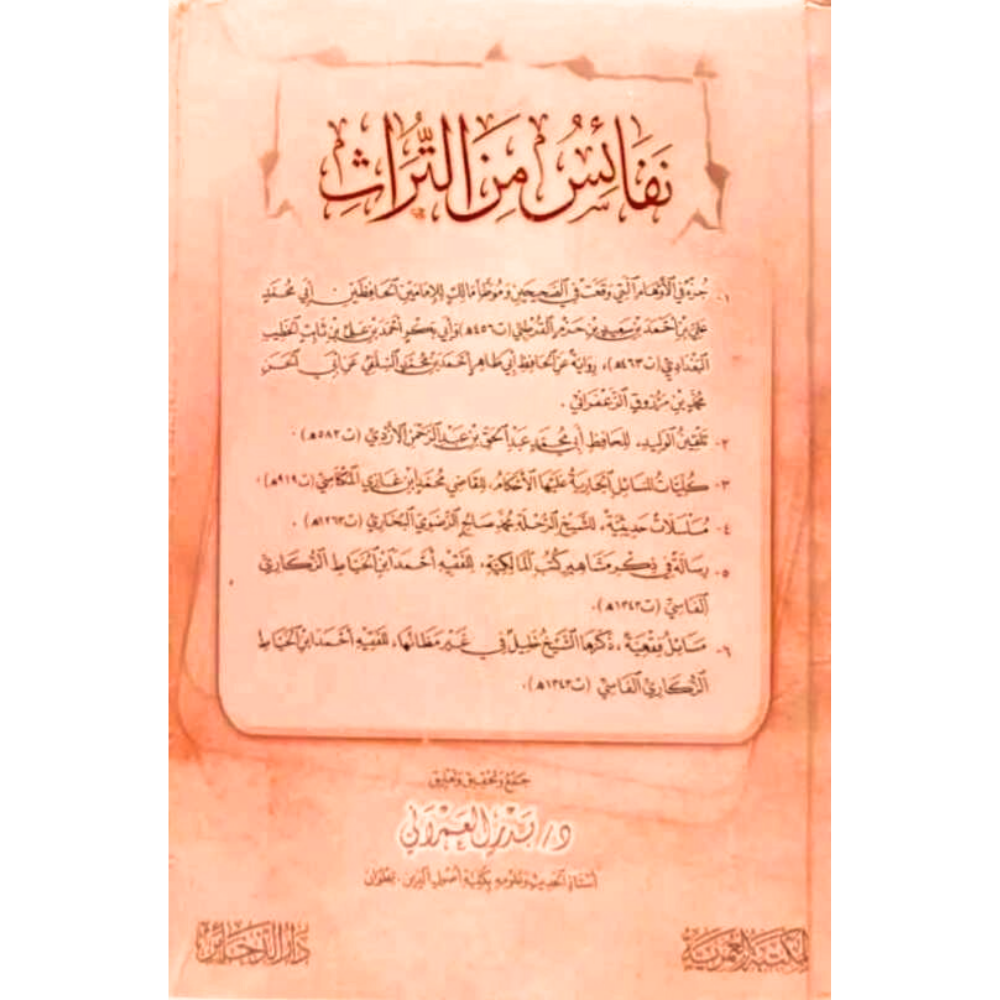 نَفَائِسُ مِنَ التُّرَاثِ
١- جزء في الأوهام التي وقعت في الصحيحين وموطأ مالك للإمامين الحافظين أبي محمد
علي بن أحمد بن سعيد بن حزم القرطبي (ت٤٥٦هـ) وأبي بكر أحمد بن علي بن ثابت الخطيب
البغدادي (ت٤٦٣هـ)، رواية عن الحافظ أبي طاهر أحمد بن محمد السلفي عن أبي الحسن
محمد بن مرزوق الزعفراني .
٢- تلقين الوليد، للحافظ أبي محمد عبد الحق بن عبد الرحمن الأزدي (ت٥٨٢هـ) .
٣- كليات المسائل الجارية عليها الأحكام، للقاضي محمد ابن غازي المكناسي (ت٩١٩هـ) .
٤- مسلسلات حديثية، للشيخ الرحلة محمد صالح الرضوي البخاري (ت١٢٦٣هـ) .
٥- رسالة في ذكر مشاهير كتب المالكية، للفقيه أحمد ابن الخياط الزكاري
الفاسي (ت١٣٤٣هـ).
٦- مسائل فقهية، ذكرها الشيخ خليل في غير مظانها، للفقيه أحمد ابن الخياط
الزكاري الفاسي (ت١٣٤٣هـ).
جمع وتحقيق وتعليق
د. بدر العمراني
أستاذ الحديث وعلومه بكلية أصول الدين . بتطوان
المكتبة العمرية
دار الذخائر